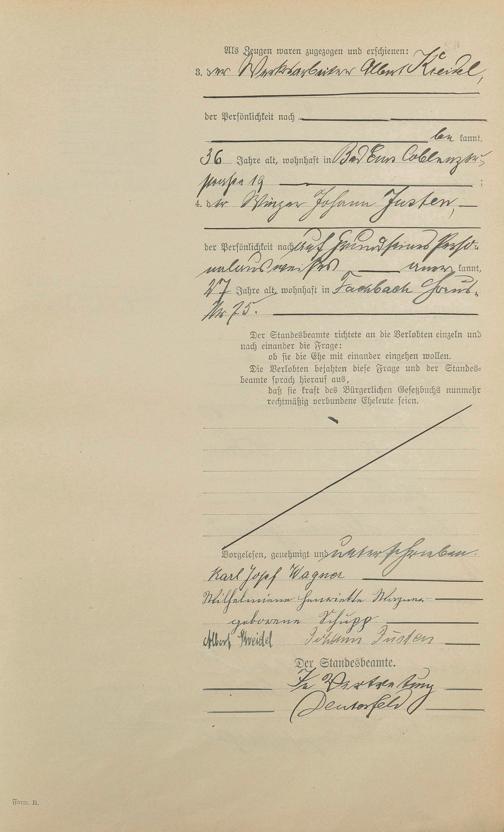 Als Zeugen waren zugezogen und erschienen:
3. der Werksarbeiter Albert Kreidel,
der Persönlichkeit nach
be kannt,
36 Jahre alt, wohnhaft in Bad Ems Coblenzer-
strasse 19 ;
4. der Winzer Johann Justen,
der Persönlichkeit nach auf Grund seines Perso-
nalausweises aner kannt,
27 Jahre alt, wohnhaft in Fachbach Haus-
Nr. 75.
Der Standesbeamte richtete an die Verlobten einzeln und
nach einander die Frage:
ob sie die Ehe mit einander eingehen wollen.
Die Verlobten bejahten diese Frage und der Standes-
beamte sprach hierauf aus,
daß sie kraft des Bürgerlichen Gesetzbuchs nunmehr
rechtmäßig verbundene Eheleute seien.
Vorgelesen, genehmigt und unterschrieben
Karl Josef Wagner
Henriette Wagner
geborene Schupp
Albert Kreidel Johann Justen
Der Standesbeamte.
In Vertretung
Form. B.